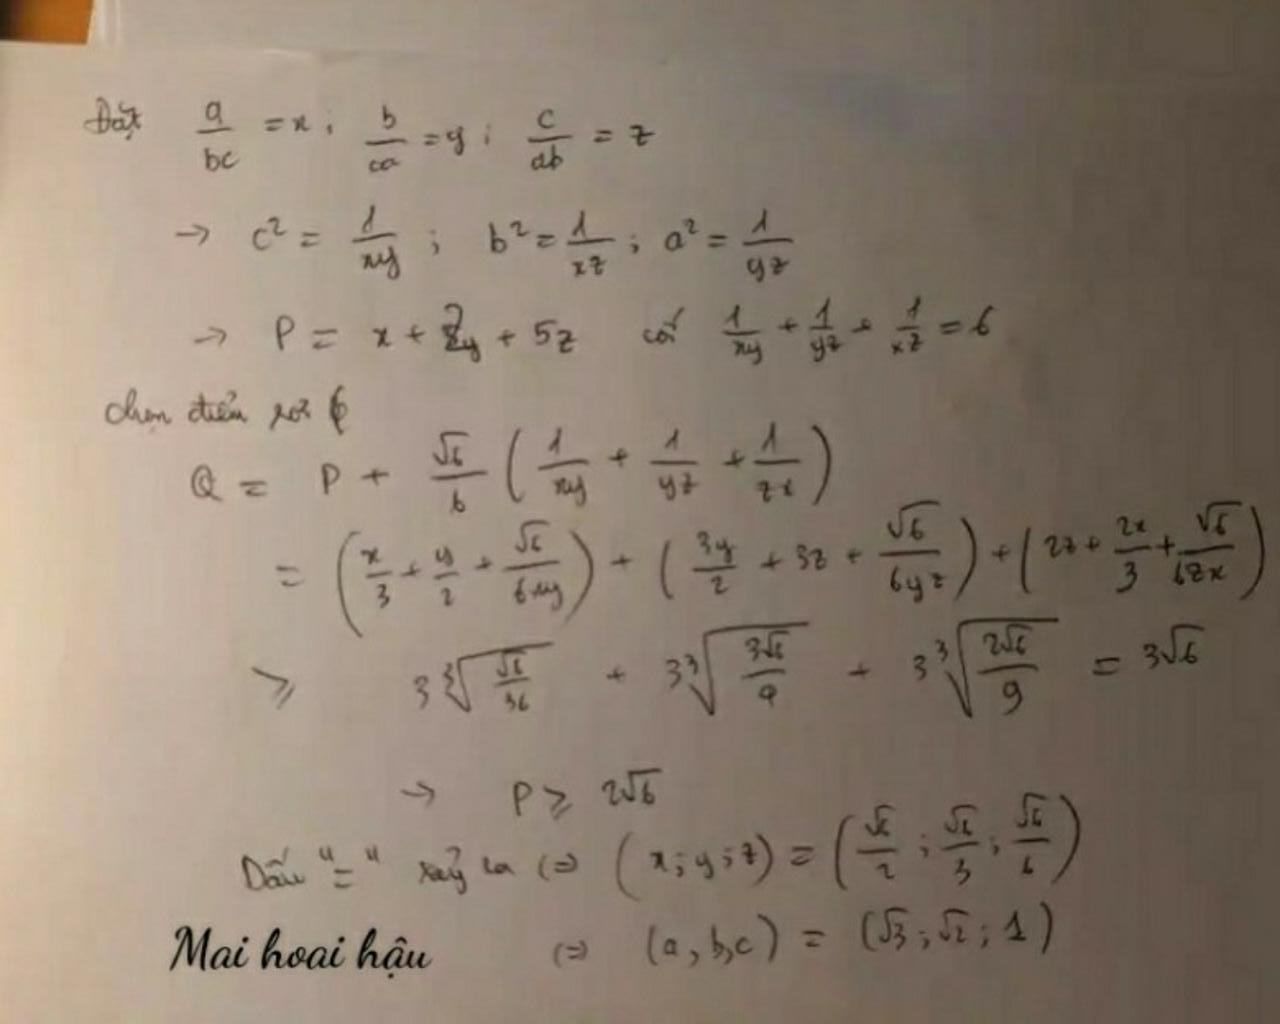 Đặt a/bc = x ; b/ca = y ; c/ab = z
→ c² = 1/xy ; b² = 1/xz ; a² = 1/yz
→ P = x + 2y + 5z có 1/xy + 1/yz + 1/xz = 6
chọn điểm rơi
Q = P + √6/6 (1/xy + 1/yz + 1/zx)
= (x/3 + y/2 + √6/6xy) + (3y/2 + 3z + √6/6yz) + (2z + 2x/3 + √6/6zx)
≥ 3∛(√6/36) + 3∛(3√6/4) + 3∛(2√6/9) = 3√6
→ P ≥ 2√6
Dấu "=" xảy ra ⇔ (x ; y ; z) = (√6/2 ; √6/3 ; √6/6)
Mai hoai hậu ⇔ (a, b, c) = (√3 ; √2 ; 1)